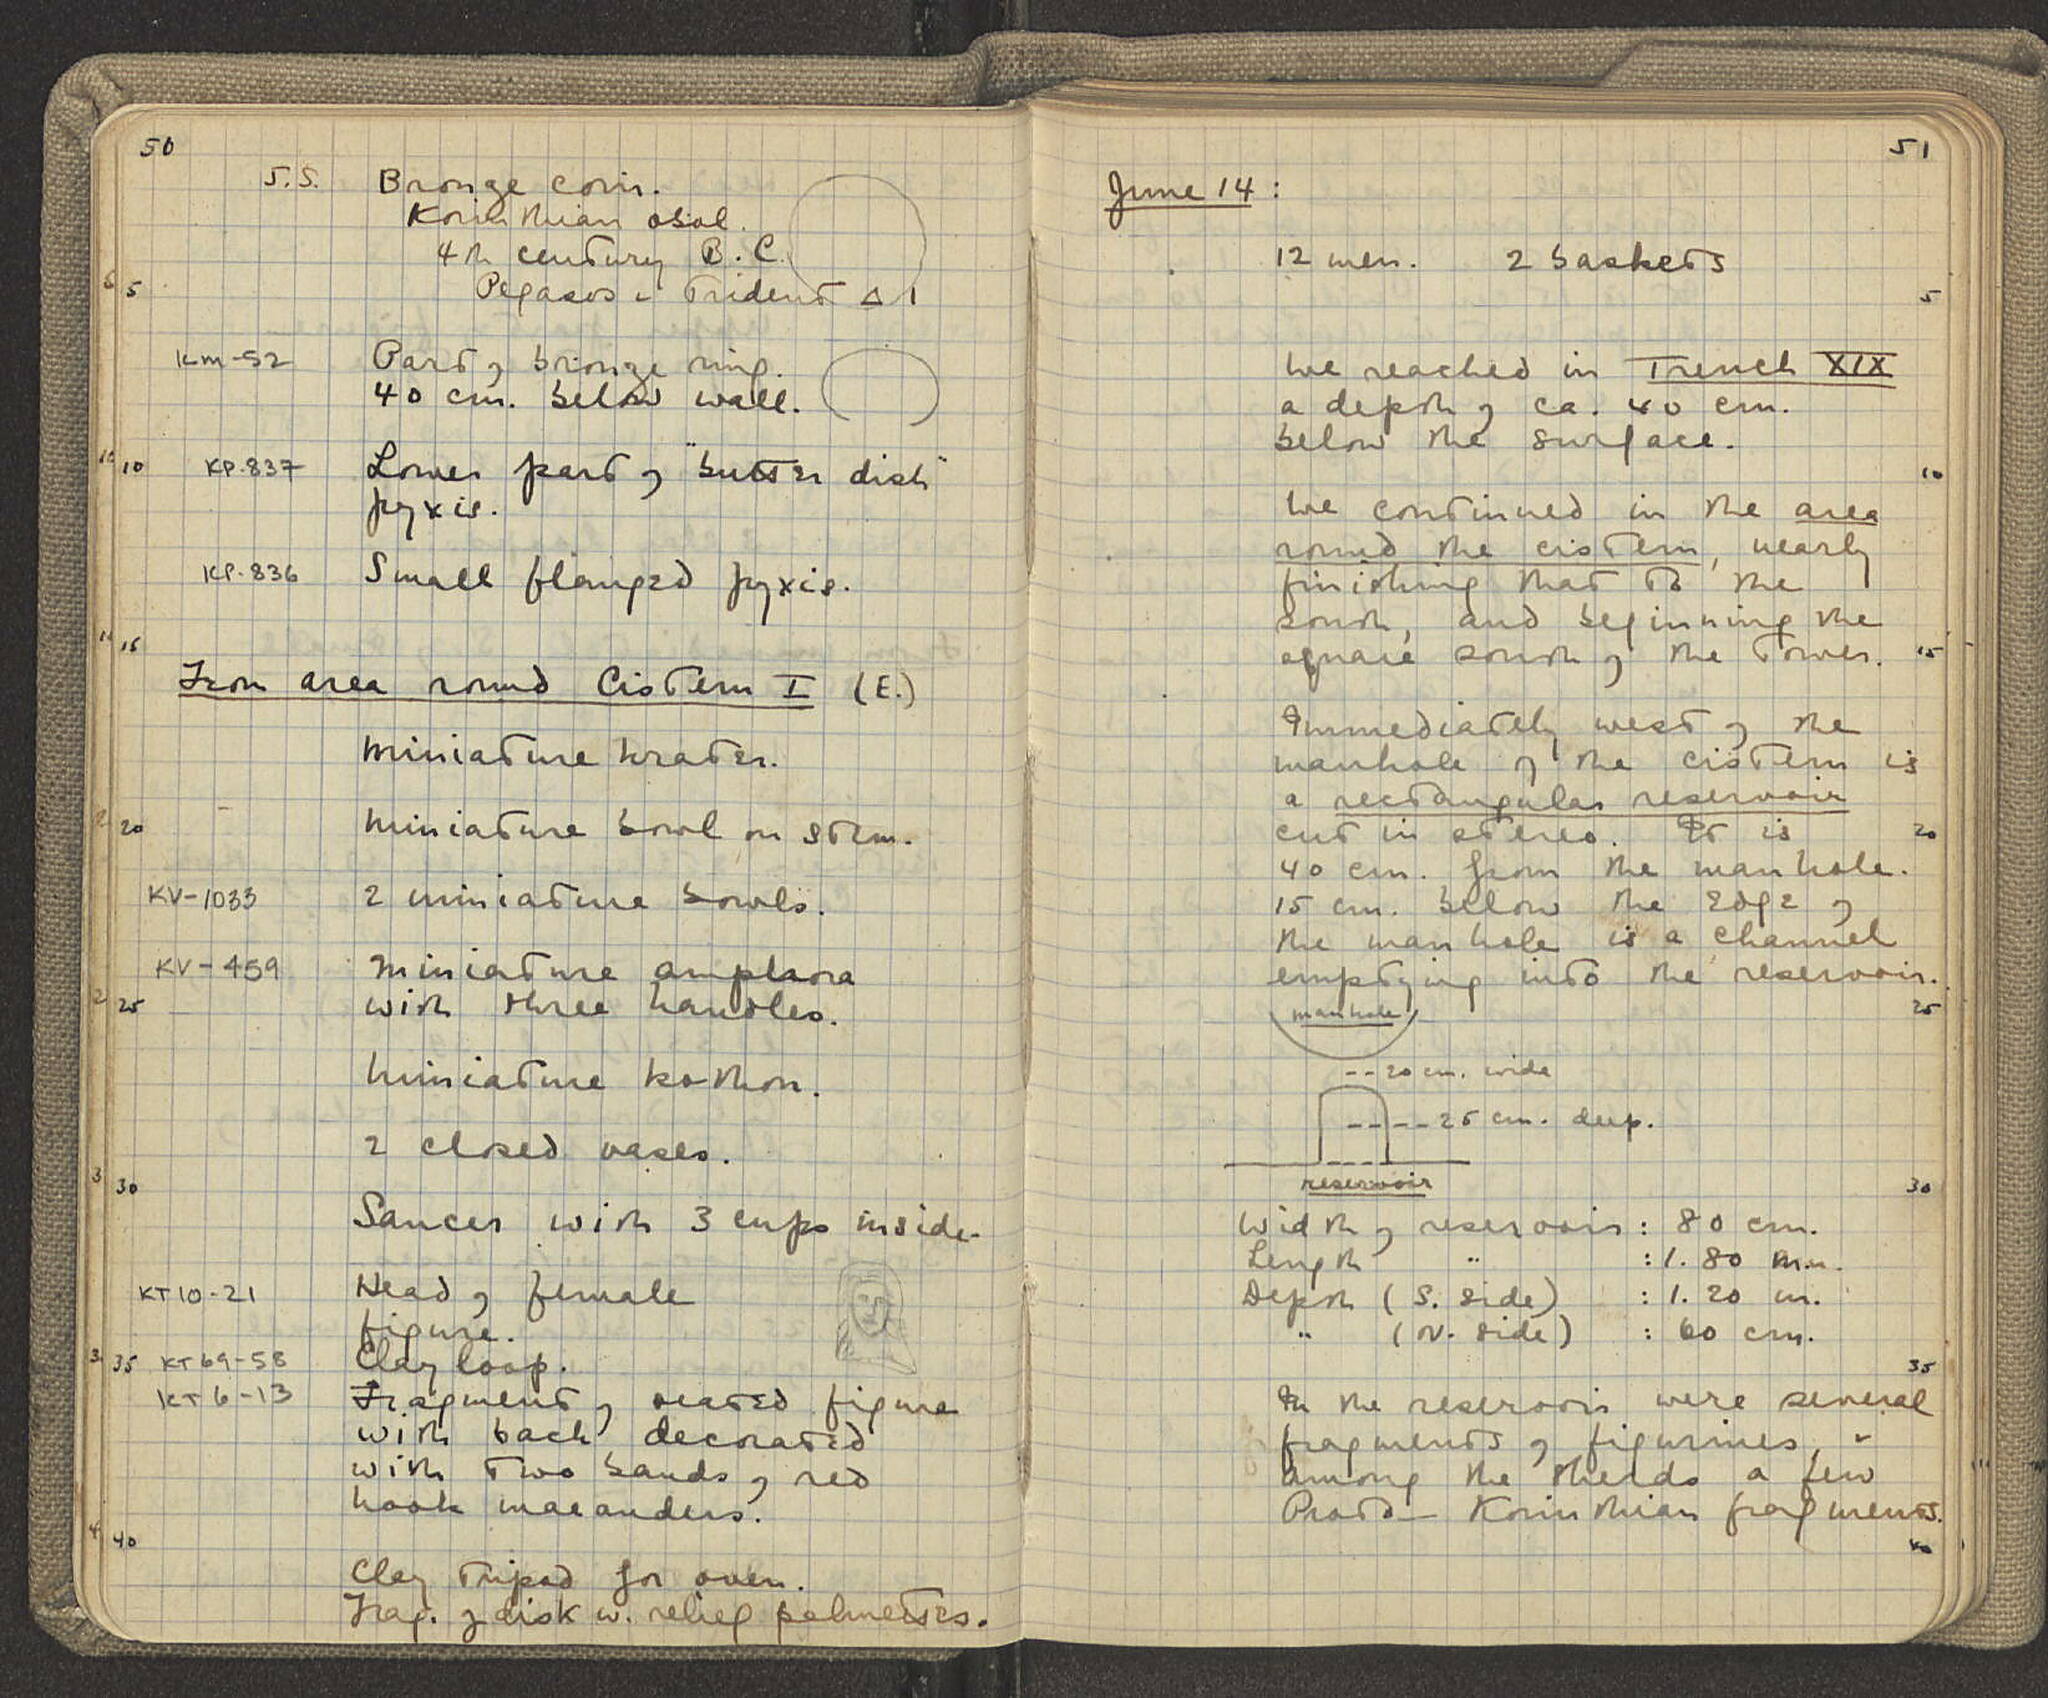 50
S.S. Bronze coin.
Korinthian obol.
4th century B.C.
Pegasos - Trident Δ I
5
KM-52 Part of bronze ring.
40 cm. below wall.
10 KP-837 Lower part of "butter dish"
pyxis.
KP-836 Small flanged pyxis.
15
From area round Cistern I (E.)
Miniature krater.
20 Miniature bowl on stem.
KV-1033 2 miniature bowls.
KV-459 Miniature amphora
25 with three handles.
Miniature kothon.
2 closed vases.
30
Saucer with 3 cups inside.
KT10-21 Head of female
figure.
35 KT69-58 Clay loop.
KT6-13 Fragment of seated figure
with back decorated
with two bands of red
hook maeanders.
40
Clay tripod for oven.
Frag. of disk w. relief palmettes.
51
June 14:
12 men. 2 baskets
5
We reached in Trench XIX
a depth of ca. 40 cm.
below the surface.
10
We continued in the area
round the cistern, nearly
finishing that to the
south, and beginning the
square south of the Tower. 15
Immediately west of the
manhole of the cistern is
a rectangular reservoir
cut in stereo. It is 20
40 cm. from the manhole.
15 cm. below the edge of
the manhole is a channel
emptying into the reservoir.
manhole 25
--20 cm. wide
----25 cm. deep.
reservoir 30
Width of reservoir : 80 cm.
Length " : 1.80 m.
Depth (S. side) : 1.20 m.
" (N. side) : 60 cm.
35
In the reservoir were several
fragments of figurines,
among the sherds a few
Proto-Korinthian fragments.
40